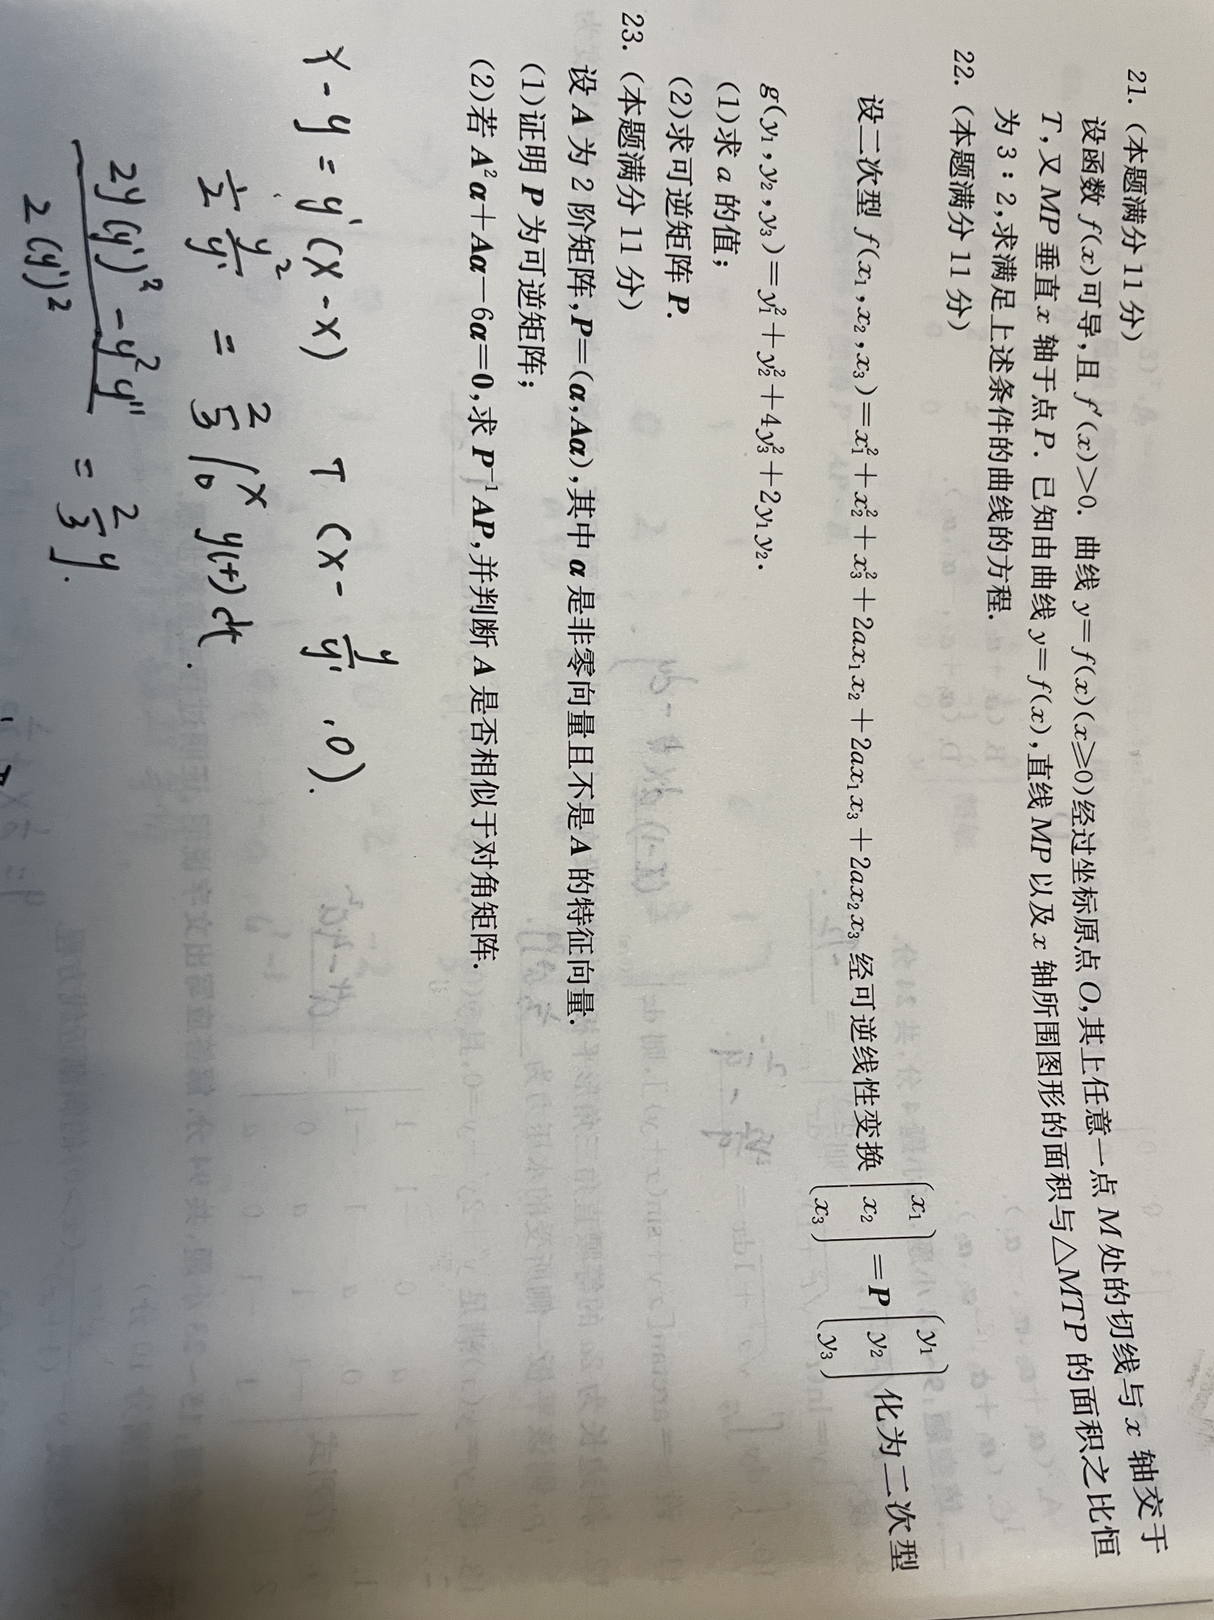 21. (本题满分 11 分)
设函数 f(x)可导,且 f′(x)>0. 曲线 y=f(x)(x≥0)经过坐标原点 O,其上任意一点 M 处的切线与 x 轴交于
T,又 MP 垂直 x 轴于点 P. 已知由曲线 y=f(x),直线 MP 以及 x 轴所围图形的面积与△MTP 的面积之比恒
为 3:2,求满足上述条件的曲线的方程.
22. (本题满分 11 分)
设二次型 f(x₁,x₂,x₃)=x₁²+x₂²+x₃²+2ax₁x₂+2ax₁x₃+2ax₂x₃ 经可逆线性变换 (x₁ x₂ x₃) =P (y₁ y₂ y₃) 化为二次型
g(y₁,y₂,y₃)=y₁²+y₂²+4y₃²+2y₁y₂.
(1)求 a 的值;
(2)求可逆矩阵 P.
23. (本题满分 11 分)
设 A 为 2 阶矩阵,P=(α,Aα),其中 α 是非零向量且不是 A 的特征向量.
(1)证明 P 为可逆矩阵;
(2)若 A²α+Aα−6α=0,求 P⁻¹AP,并判断 A 是否相似于对角矩阵.
Y-y=y'(X-x) T (x- y/y' ,0).
1/2 y²/y' = 2/3 ∫₀ˣ y(t)dt.
2y(y')²-y²y'' / 2(y')² = 2/3 y.